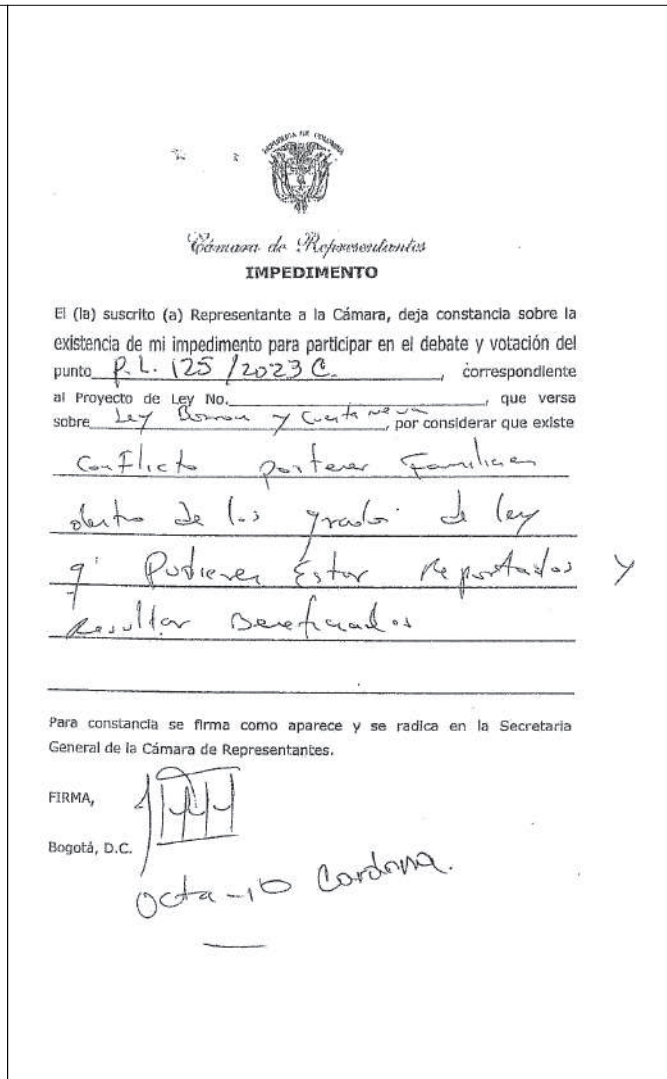 REPUBLICA DE COLOMBIA
Cámara de Representantes
IMPEDIMENTO
El (la) suscrito (a) Representante a la Cámara, deja constancia sobre la
existencia de mi impedimento para participar en el debate y votación del
punto P.L. 125 / 2023 C. , correspondiente
al Proyecto de Ley No. , que versa
sobre Ley Borron y Cuenta nueva , por considerar que existe
Conflicto por tener Familiares
dentro de los grados de ley
q' Pudieren Estar Reportados y
Resultar Beneficiados
Para constancia se firma como aparece y se radica en la Secretaria
General de la Cámara de Representantes.
FIRMA,
Bogotá, D.C.
Octavio Cardona.